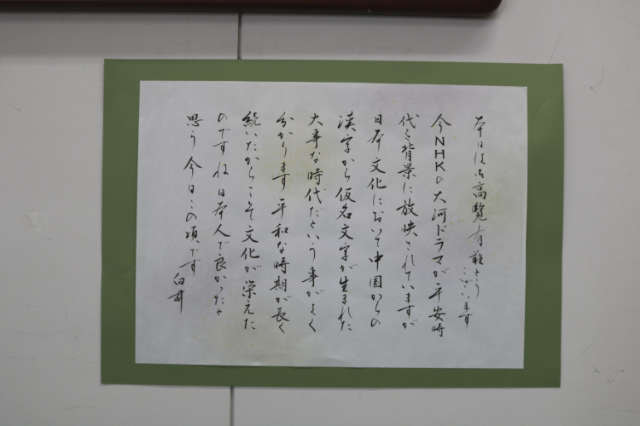 本日は御高覧有難とう
ございます
今NHKの大河ドラマが平安時
代を背景に放映されていますが
日本文化において中国からの
漢字から仮名文字が生まれた
大事な時代だという事がよく
分かります 平和な時期が長く
続いたからこそ文化が栄えた
のです 私日本人で良かったと
思う今日この頃です
白井